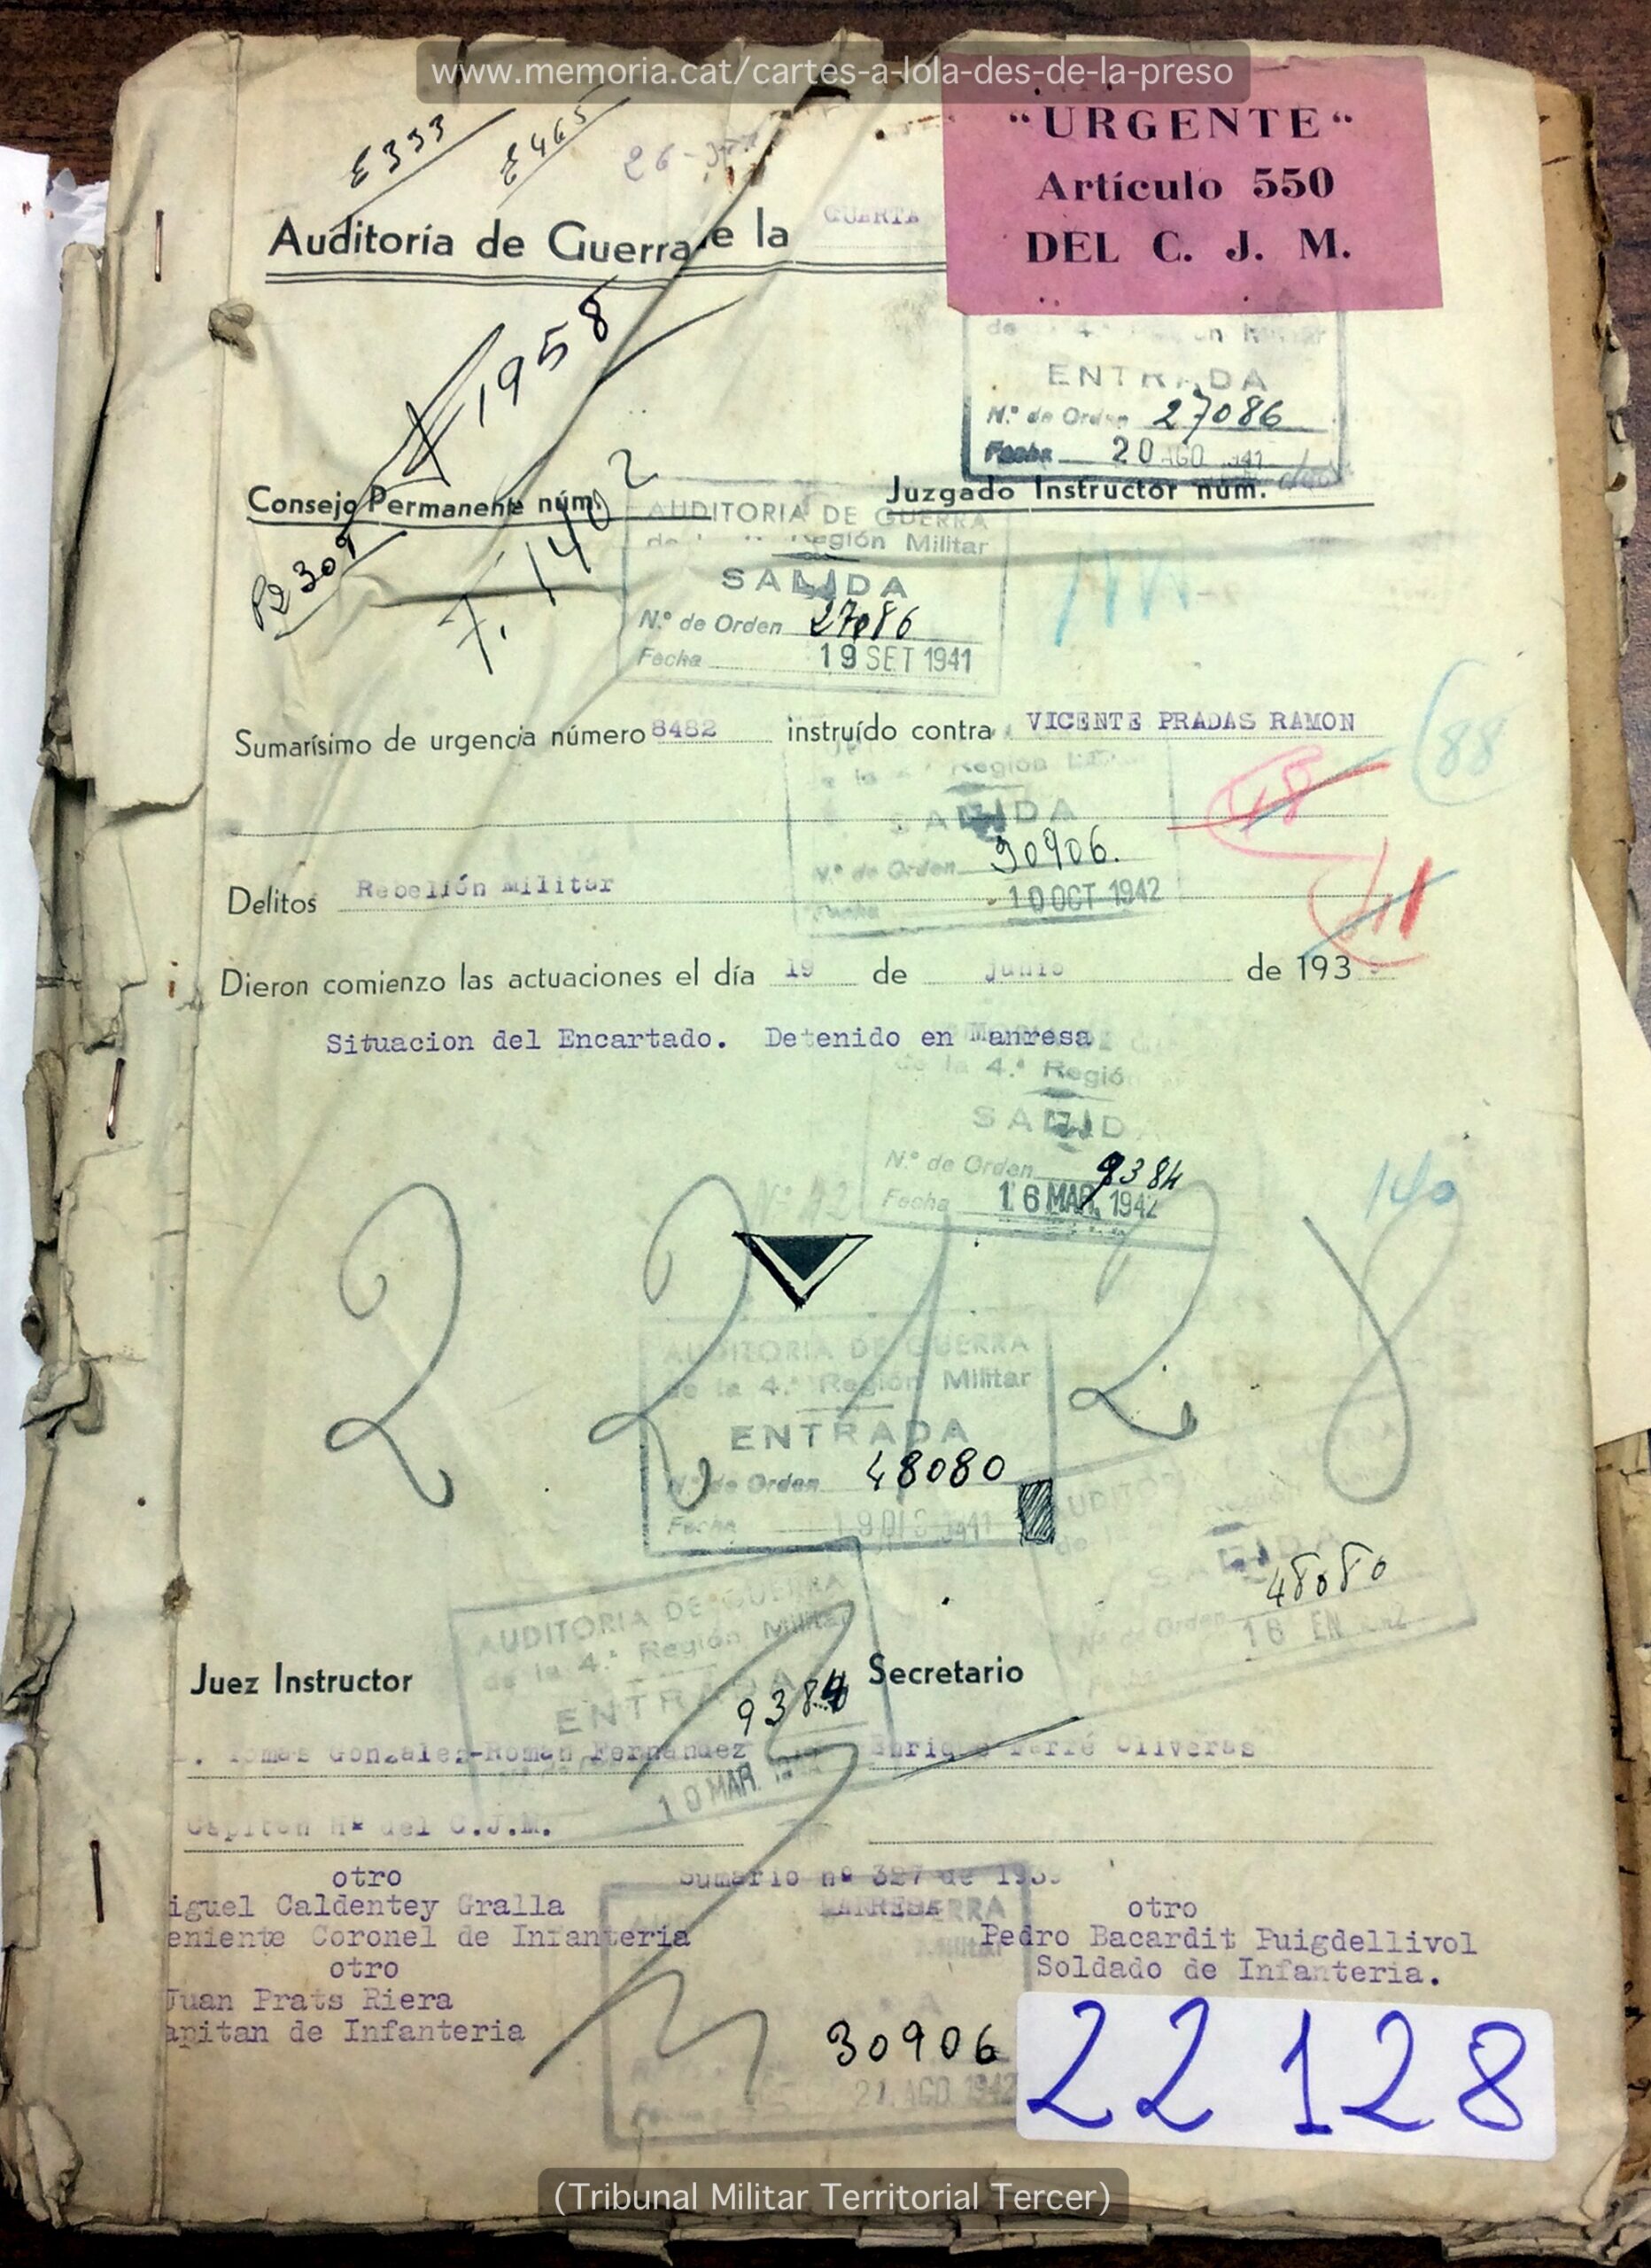 www.memoria.cat/cartes-a-lola-des-de-la-preso
"URGENTE"
Artículo 550
DEL C. J. M.
E 333
E 465
26-
Auditoría de Guerra de la CUARTA
1958
ENTRADA
N.º de Orden 27086
Fecha 20 AGO 1941
Consejo Permanente núm.
Juzgado Instructor núm.
P2 309
1402
AUDITORIA DE GUERRA
de la 4.ª Región Militar
SALIDA
N.º de Orden 27086
Fecha 19 SET 1941
Sumarísimo de urgencia número 8482 instruído contra VICENTE PRADAS RAMON
88
de la 4.ª Región
SALIDA
N.º de Orden 30906.
Fecha 10 OCT 1942
Delitos Rebelión Militar
Dieron comienzo las actuaciones el día 19 de junio de 193
Situacion del Encartado. Detenido en Manresa
de la 4.ª Regió
SALID
N.º de Orden 9384
Fecha 16 MAR. 1942
140
2 2 1 2 8
AUDITORIA DE GUERRA
de la 4.ª Región Militar
ENTRADA
N.º de Orden 48080
Fecha 19 DIC 1941
AUDITORIA
SALIDA
N.º de Orden 48080
16 EN
AUDITORIA DE GUERRA
de la 4.ª Región Militar
ENTRADA
9384
10 MAR.
Juez Instructor
Secretario
. Tomas Gonzalez-Roman Fernandez
Enrique Ferré Oliveras
Capitan Hº del C.J.M.
otro
iguel Caldentey Gralla
eniente Coronel de Infanteria
otro
Juan Prats Riera
apitan de Infanteria
Sumario nº 327 de 193
MANRESA
otro
Pedro Bacardit Puigdellivol
Soldado de Infanteria.
30906
21 AGO 1942
22128
(Tribunal Militar Territorial Tercer)